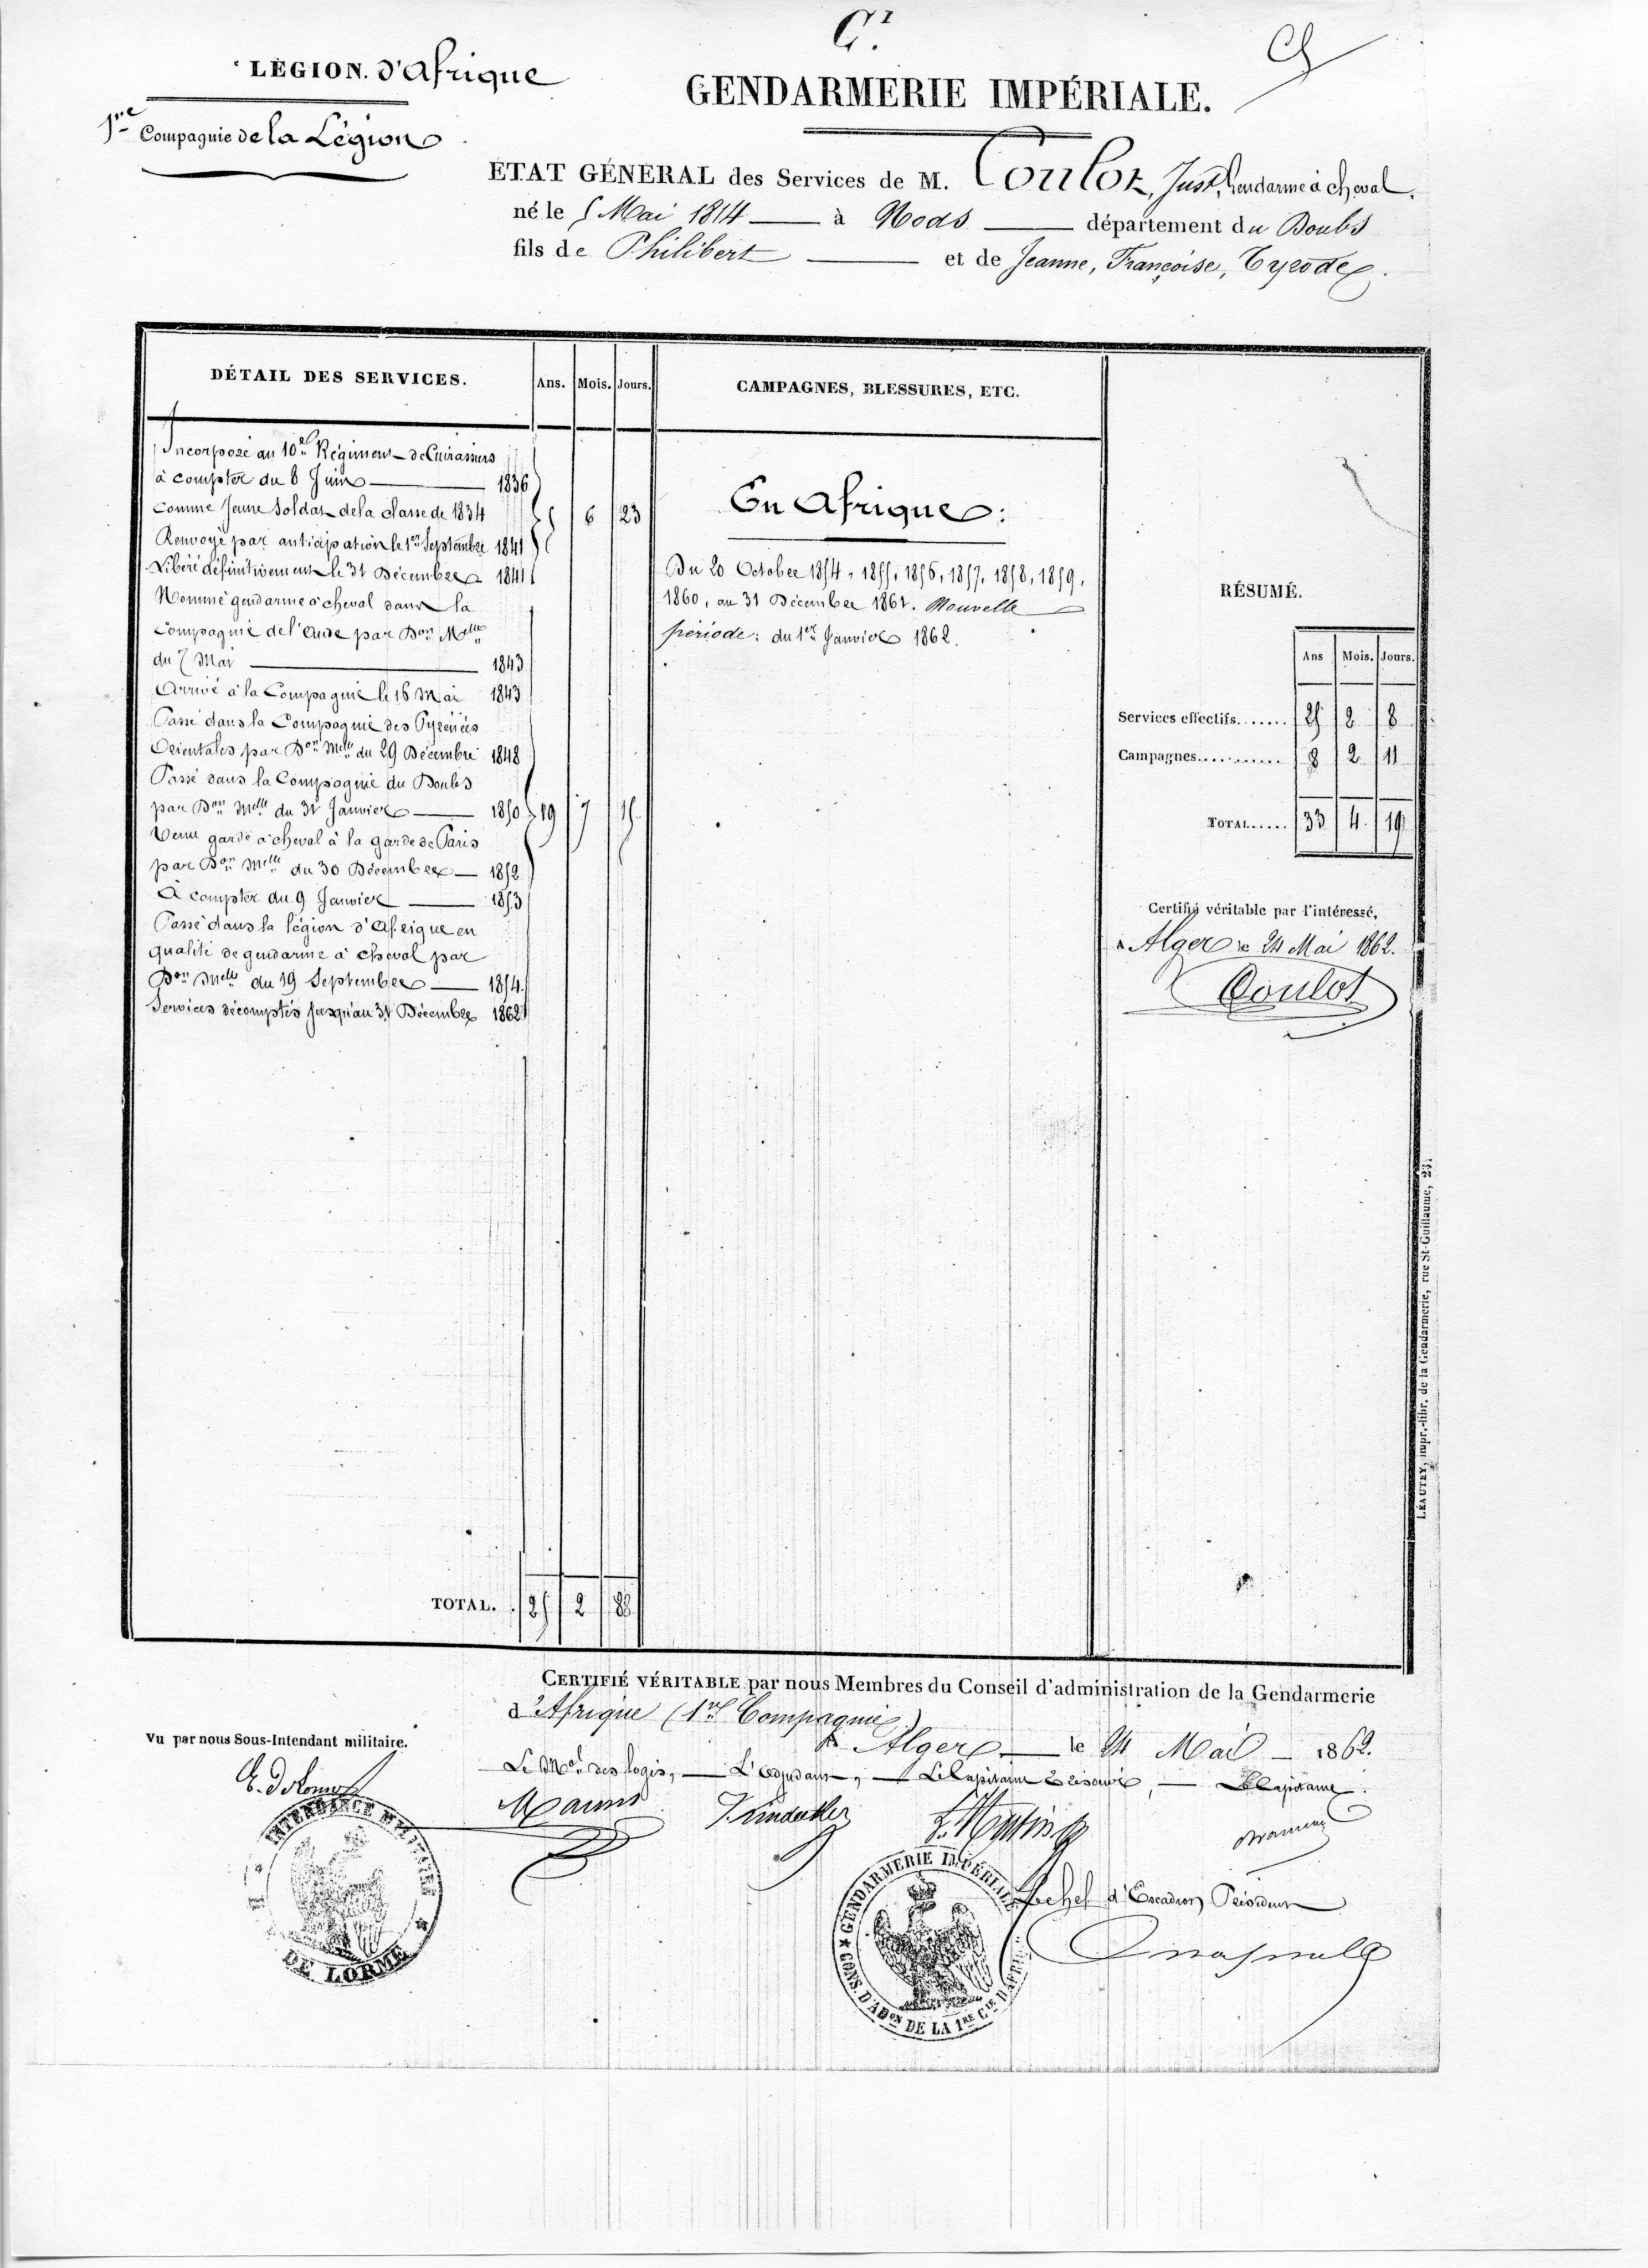 C.
LÉGION. d'Afrique
GENDARMERIE IMPÉRIALE.
1re Compagnie de la Légion
ETAT GÉNÉRAL des Services de M. Coulot, Just, Gendarme à cheval.
né le 5 Mai 1814 — à Nods — département du Doubs
fils de Philibert — et de Jeanne, Françoise, Tyrode.
DÉTAIL DES SERVICES.
Ans. Mois. Jours.
CAMPAGNES, BLESSURES, ETC.
Incorporé au 10e Régiment de Cuirassiers
à compter du 8 Juin — 1836
comme Jeune soldat de la classe de 1834
5 6 23
Renvoyé par anticipation le 1er Septembre 1841
Libéré définitivement le 31 Décembre 1841
Nommé gendarme à cheval dans la
Compagnie de l'Aude par Don Melle
du 7 Mai — 1843
Arrivé à la Compagnie le 16 Mai 1843
Passé dans la Compagnie des Pyrénées
Orientales par Don Melle du 29 Décembre 1848
Passé dans la Compagnie du Doubs
par Don Melle du 31 Janvier — 1850
19 7 15
Venu garde à cheval à la garde de Paris
par Don Melle du 30 Décembre — 1852
À compter du 9 Janvier — 1853
Passé dans la légion d'Afrique en
qualité de gendarme à cheval par
Don Melle du 19 Septembre — 1854.
Services décomptés jusqu'au 31 Décembre 1862
TOTAL. 25 2 8
En Afrique:
Du 20 Octobre 1854, 1855, 1856, 1857, 1858, 1859,
1860, au 31 Décembre 1861. Nouvelle
période: du 1er Janvier 1862.
RÉSUMÉ.
Ans Mois. Jours.
Services effectifs....... 25 2 8
Campagnes........... 8 2 11
TOTAL..... 33 4 19
Certifié véritable par l'intéressé,
A Alger le 24 Mai 1862.
Coulot
LÉAUTEY, impr.-libr. de la Gendarmerie, rue St-Guillaume, 23.
CERTIFIÉ VÉRITABLE par nous Membres du Conseil d'administration de la Gendarmerie
d'Afrique (1re Compagnie)
A Alger — le 24 Mai — 1862.
Vu par nous Sous-Intendant militaire.
Le Mal des logis, — L'adjudant, — Le Capitaine Trésorier, — Le Capitaine.
E. DeLorme
INTENDANCE MILITAIRE
DE LORME
GENDARMERIE IMPÉRIALE
CONS. D'ADON DE LA 1RE CIE D'AFRIQUE
Le chef d'Escadron Président